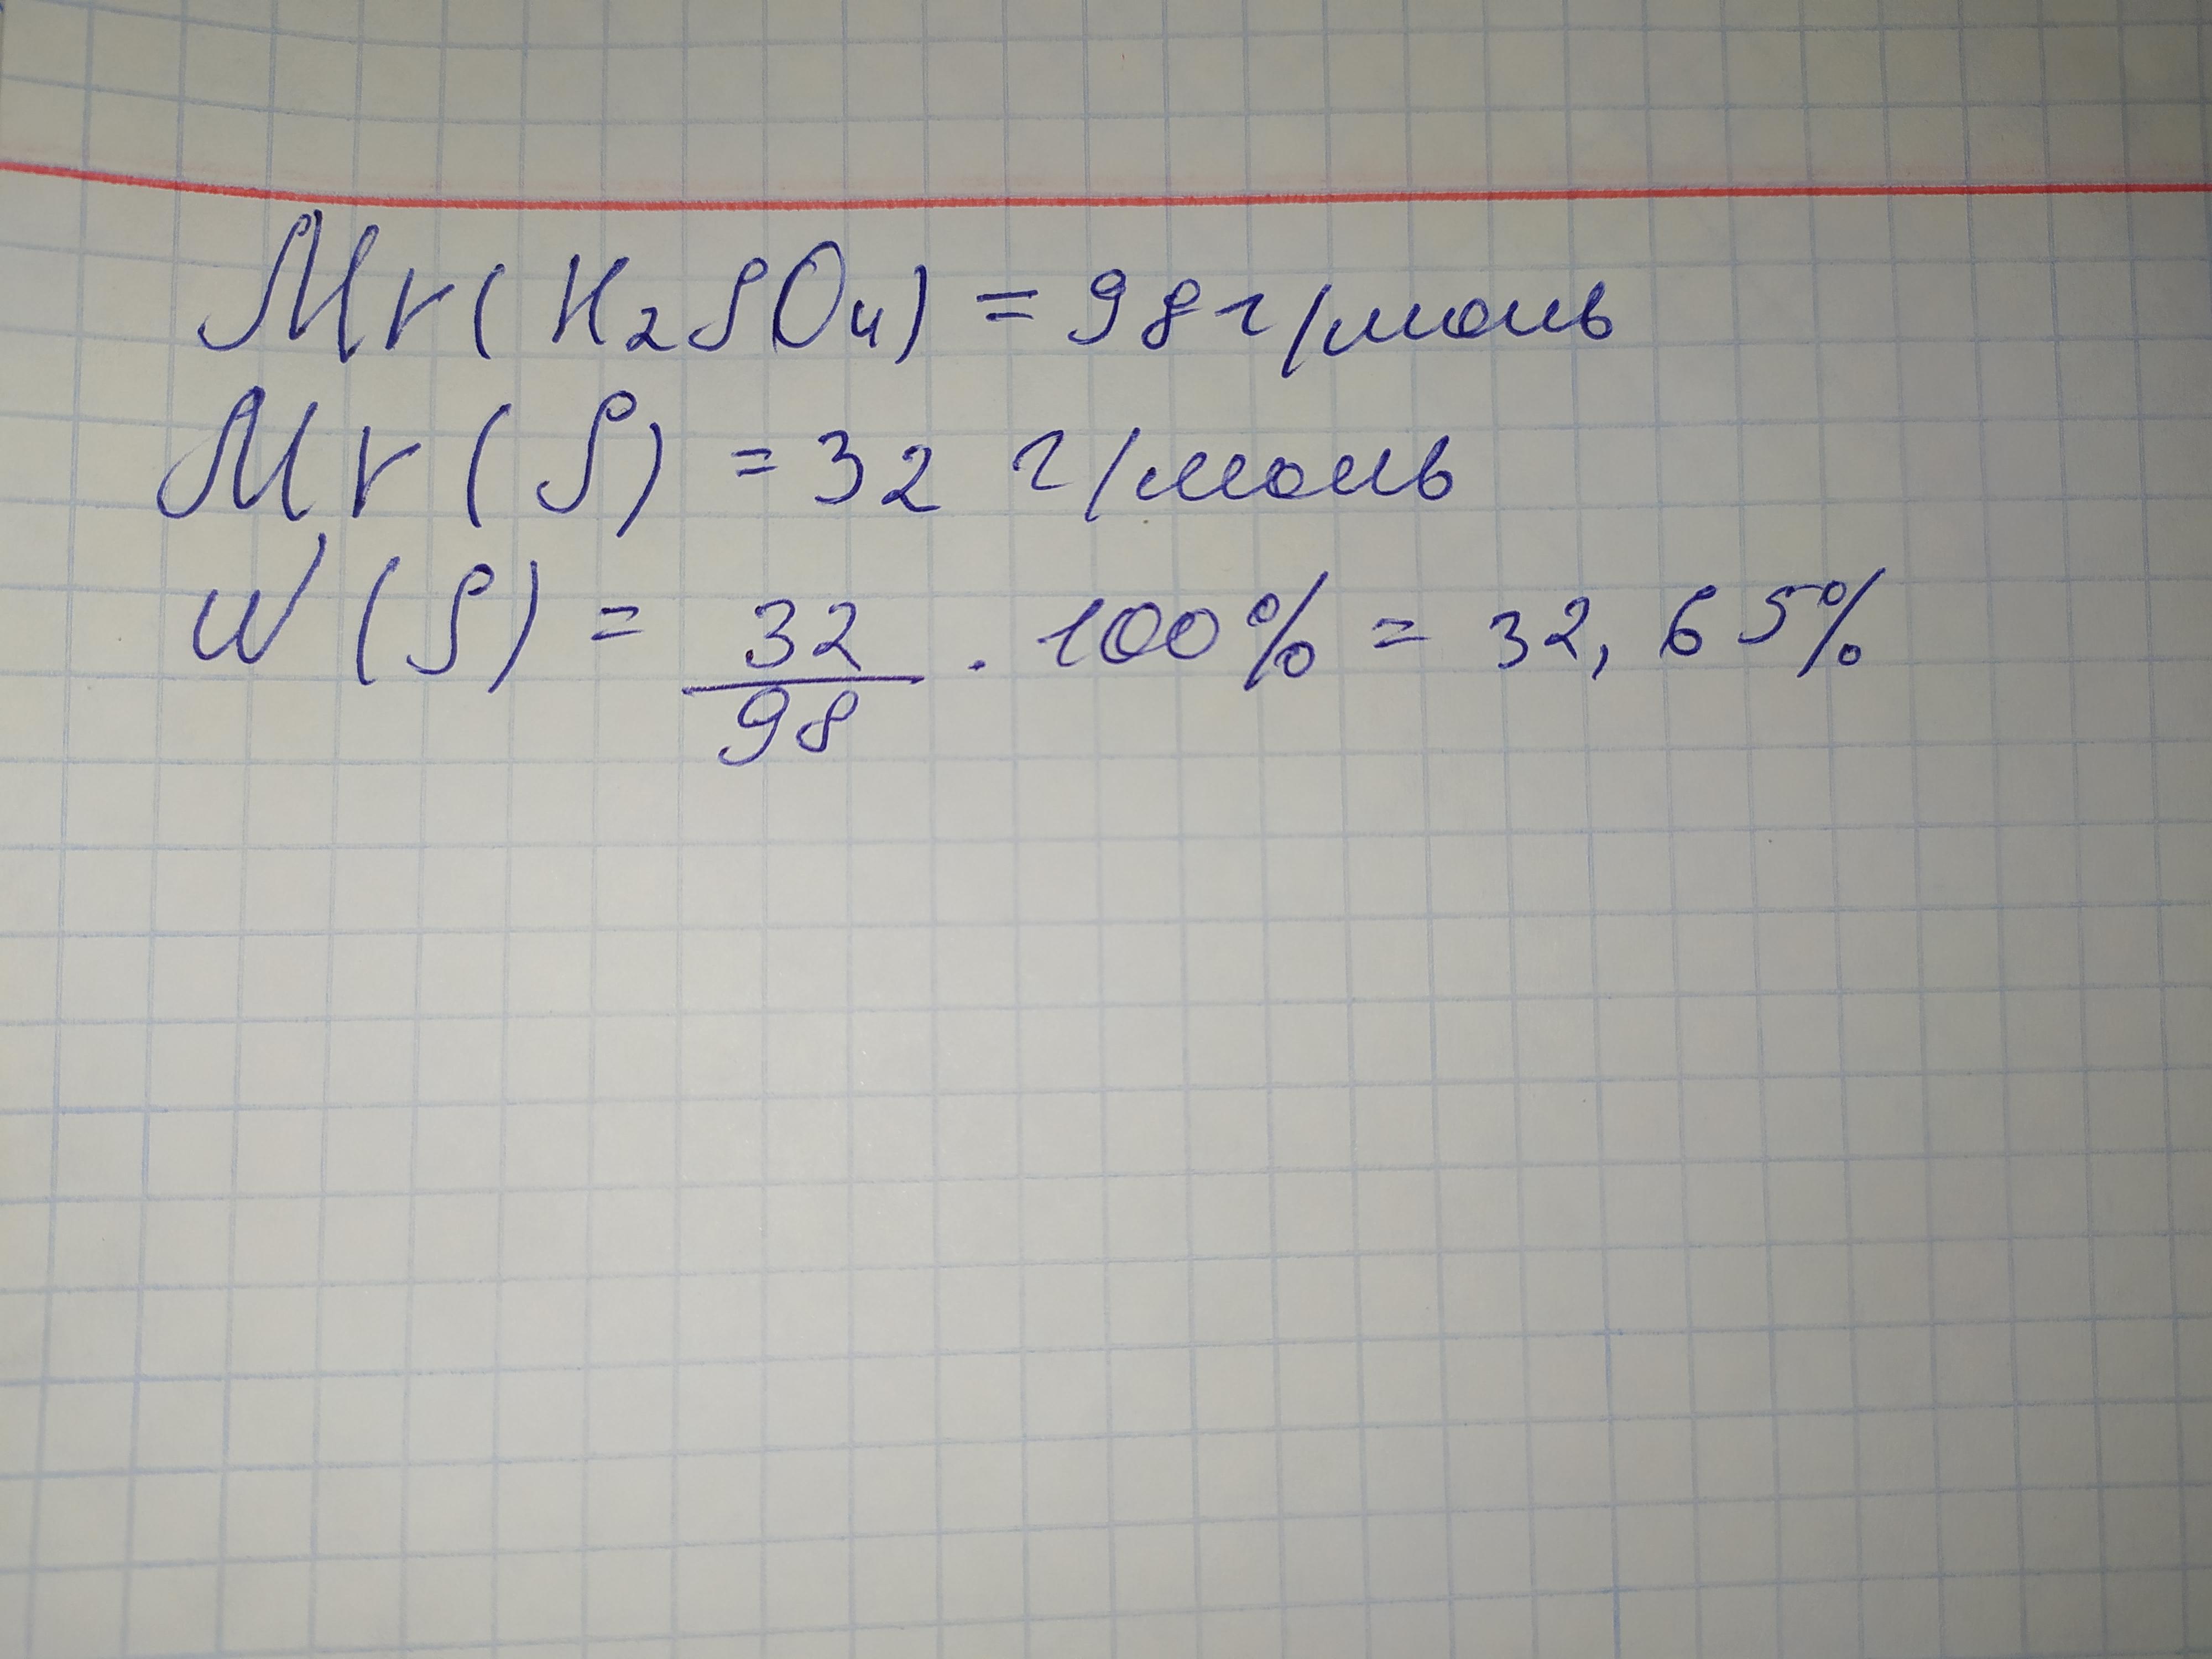 Mr(H₂SO₄) = 98 г/моль
Mr(S) = 32 г/моль
W(S) = 32/98 · 100% = 32,65%